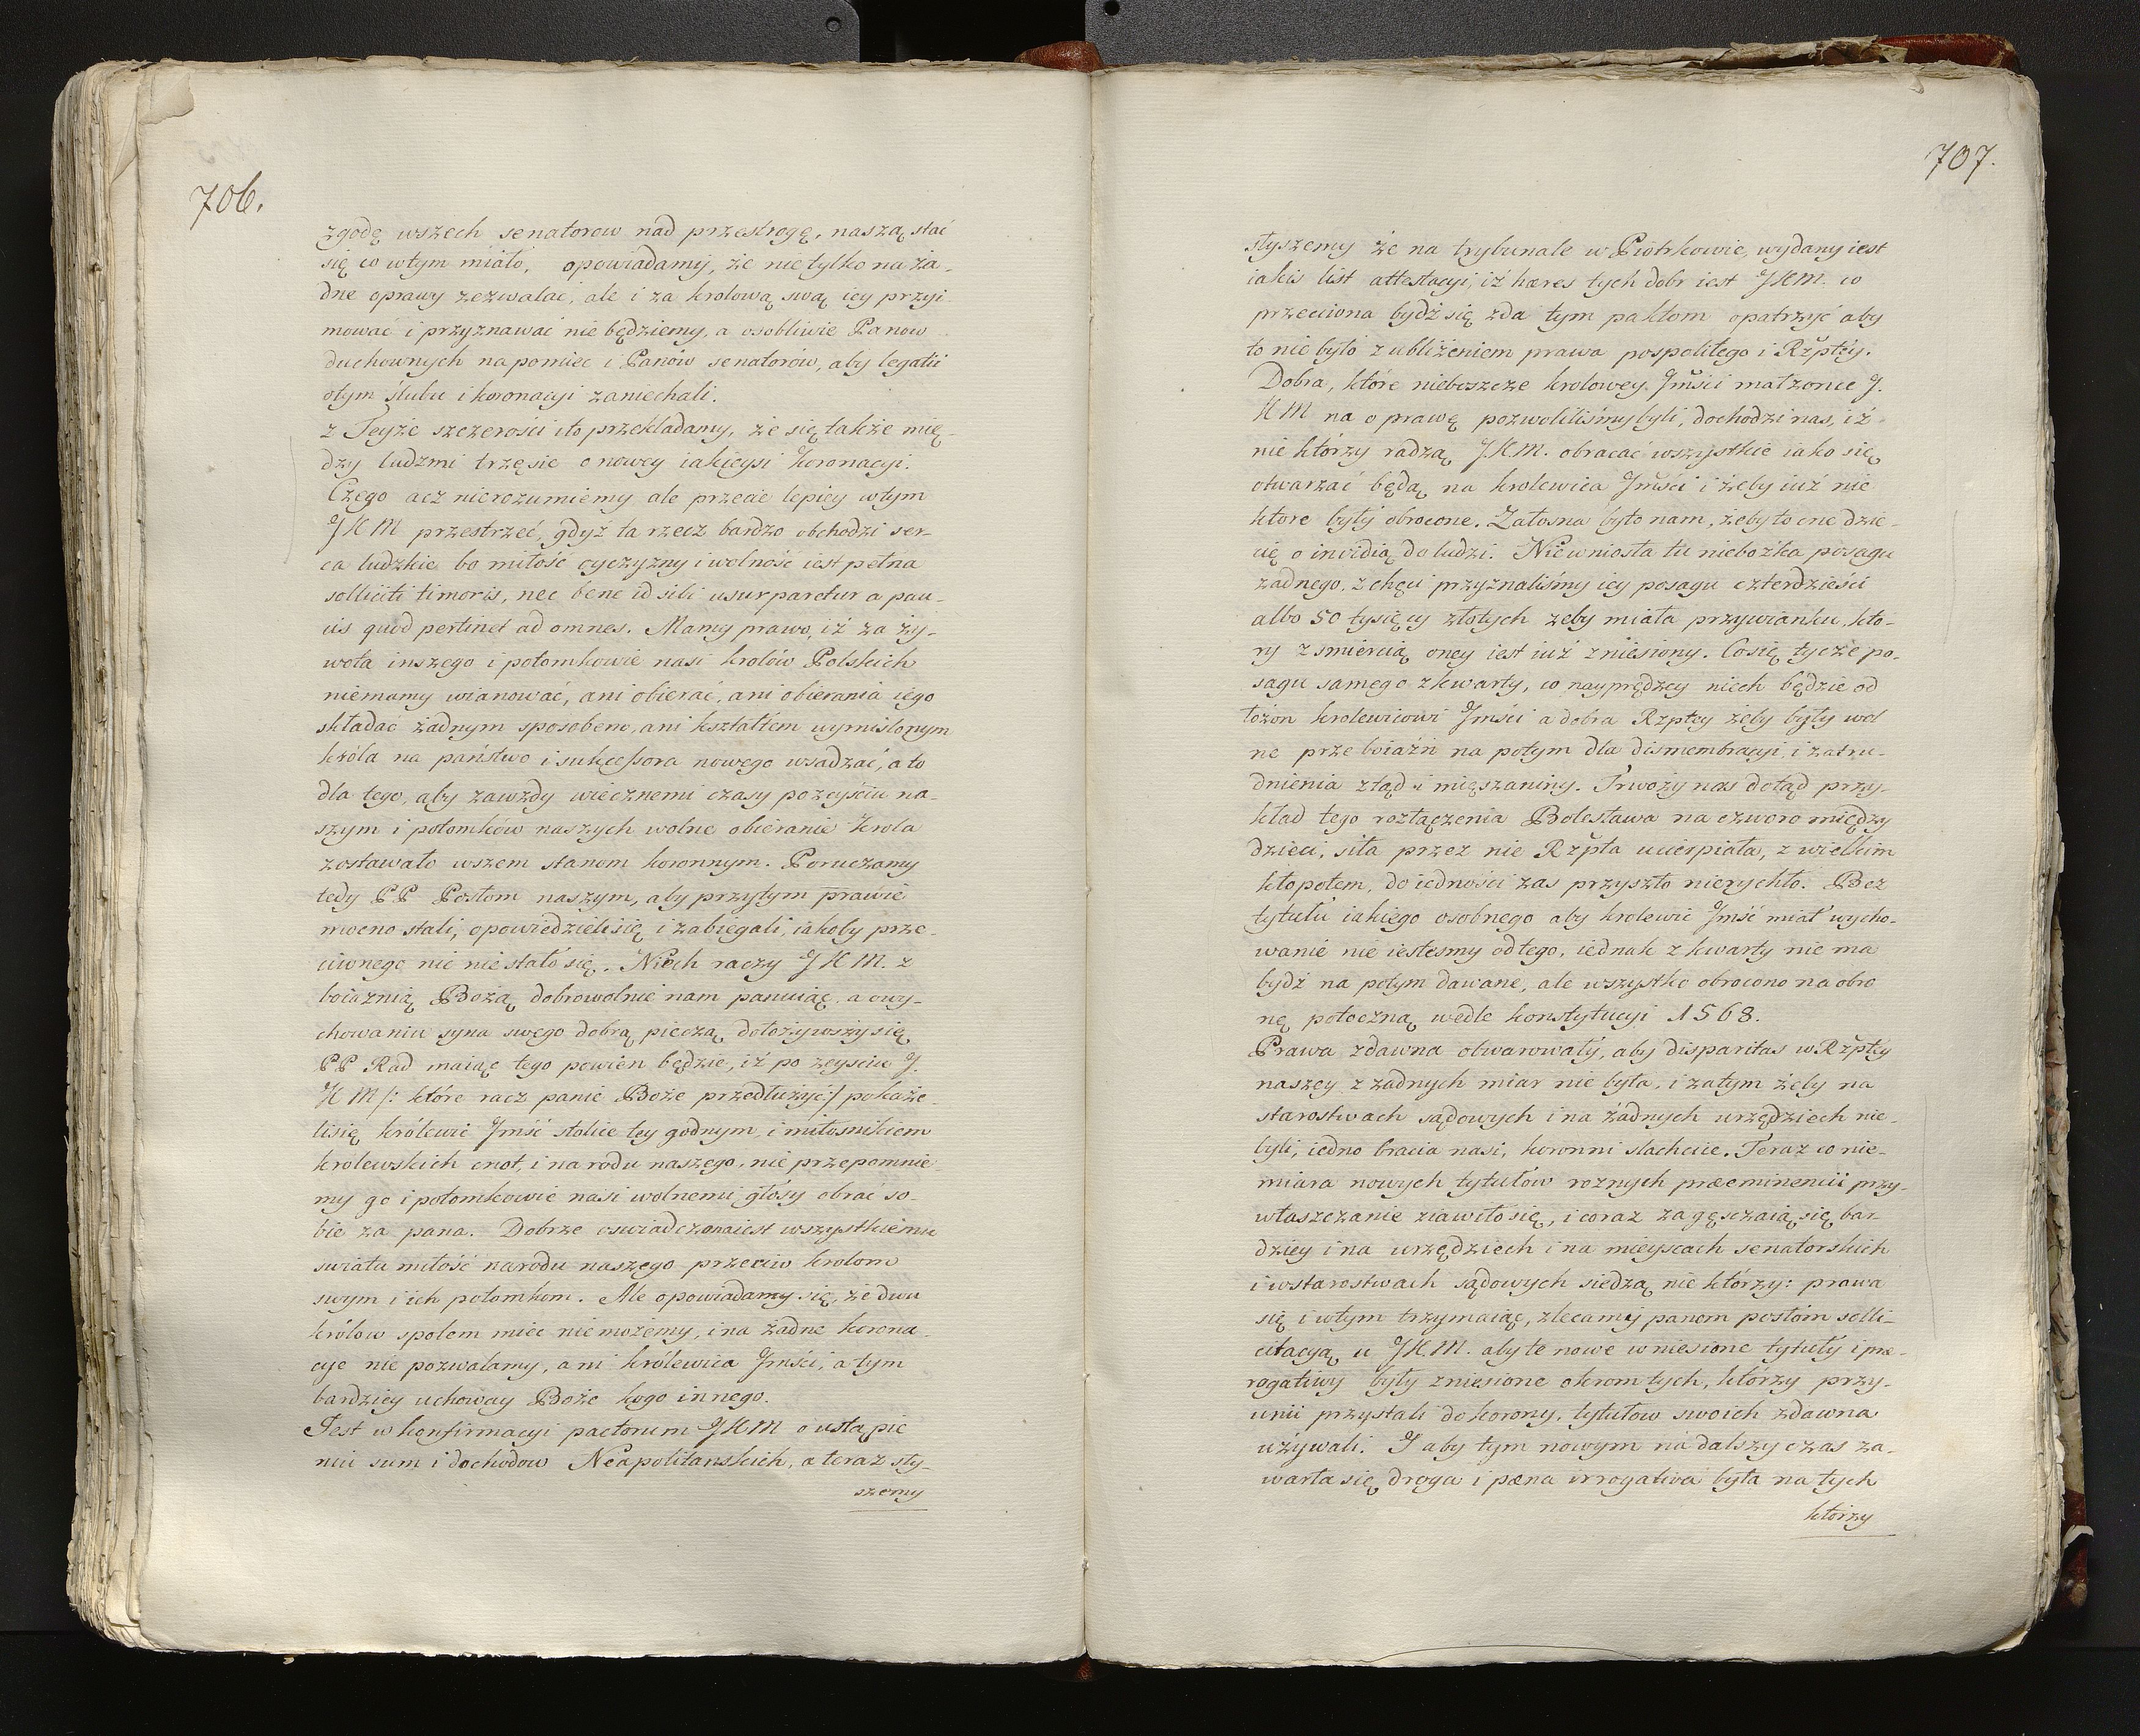 706.
zgodę wszech senatorow nad przestrogę, naszą stać
się co wtym miało, opowiadamy, że nie tylko na ża-
dne oprawy zezwalać, ale i za krolową swą iey przyi-
mować i przyznawać nie będziemy, a osobliwie Panow
duchownych napomiec i Panów senatorów, aby legatii
otym ślubu i koronacyi zaniechali.
z Teyże szczerości i to przekładamy, że się także mię-
dzy ludzmi trzęsie o nowey iakieysi koronacyi.
Czego acz nierozumiemy ale przecie lepiey wtym
JKM przestrzec, gdyż ta rzecz bardzo obchodzi ser-
ca ludzkie bo miłość oyczyzny i wolność iest pełna
solliciti timoris, nec bene id sibi usurparetur a pau-
cis quod pertinet ad omnes. Mamy prawo, iż za ży-
wota inszego i potomkowie nasi krolów Polskich
niemamy wianować, ani obierać, ani obierania iego
składać żadnym sposobem, ani kształtem wymislonym
króla na państwo i sukcessora nowego wsadzać, a to
dla tego, aby zawzdy wiecznemi czasy po zeyściu na-
szym i potomków naszych wolne obieranie krola
zostawało wszem stanom koronnym. Poruczamy
tedy PP Posłom naszym, aby przytym prawie
mocno stali, opowiedzieli się i zabiegali, iakoby prze-
ciwnego nic nie stało się. Niech raczy JKM. z
boiaznią Bożą dobrowolnie nam panuiąc, a o wy-
chowaniu syna swego dobrą pieczą dołożywszy się
PP Rad maiąc tego powien będzie, iż po zeysciu J.
KM /: które racz panie Boże przedłużyć / pokaże
li się królewic Jmść stolice tey godnym i miłosnikiem
królewskich cnot, i narodu naszego, nie przepomnie-
my go i potomkowie nasi wolnemi głosy obrać so-
bie za pana. Dobrze oswiadczona iest wszystkiemu
swiatu miłość narodu naszego przeciw krolom
swym i ich potomkom. Ale opowiadamy się, że dwu
królow społem miec nie możemy, i na żadne korona-
cye nie pozwalamy, ani królewica Jmści, a tym
bardziey uchoway Boże kogo innego.
Jest w konfirmacyi pactorum JKM o ustąpie
niu sum i dochodow Neapolitanskich, a teraz sły-
szemy
707.
słyszemy że na trybunale w Piotrkowie, wydany iest
iakis list attestacyi, iż hæres tych dobr iest JKM. co
przeciona bydź się zda tym paktom opatrzyć aby
to nie było z ubliżeniem prawa pospolitego i Rzptéy.
Dobra, które nieboszcze krolowey Jmści małżonce J.
KM na oprawę pozwoliliśmy byli, dochodzi nas, iż
nie którzy radzą JKM. obracać wszystkie iako się
otwarzać będą na krolewica Jmści i żeby iuż nie
ktore były obrocone. Załosna by to nam, żeby to one dzie-
cię o invidią do ludzi. Niewniosła tu niebożka posagu
żadnego, z chęci przyznaliśmy iey posagu czterdzieści
albo 50 tysięcy złotych żeby miała przywianku, kto-
ry z smiercią oney iest iuż zniesiony. Co się tycze po-
sagu samego z kwarty, co nayprędzey niech będzie od
łożon krolewicowi Jmści a dobra Rzptey żeby były wol
ne prze boiaźń na potym dla dismembracyi, i zatru-
dnienia ztąd i mięszaniny. Trwoży nas dotąd przy-
kład tego rozłączenia Bolesława na czworo między
dzieci, siła przez nie Rzpta ucierpiała, z wielkim
kłopotem, do iedności zas przyszło nierychło. Bez
tytułu iakiego osobnego aby krolewic Jmść miał wycho-
wanie nie iestesmy od tego, iednak z kwarty nie ma
bydź na potym dawane, ale wszystko obrocono na obro
nę potoczną wedle konstytucyi 1568.
Prawa zdawna otwarowały, aby disparitas w Rzptéy
naszey z żadnych miar nie była, i zatym żeby na
starostwach sądowych i na żadnych urzędziech nie-
byli, iedno bracia nasi, koronni slachcice. Teraz co nie-
miara nowych tytułów roznych præeminencii przy-
właszczanie ziawiło się, i coraz zagęsczaią się bar-
dziey i na urzędziech i na mieyscach senatorskich
i w starostwach sądowych siedzą nie którzy: prawa
się i wtym trzymaiąc, zlecamy panom posłóm solli-
citacyą u JKM. aby te nowe wniesione tytuły i præ-
rogatiwy były zniesione okrom tych, którzy przy-
unii przystali do korony, tytułow swoich zdawna
używali. I aby tym nowym na dalszy czas za-
warta się droga i pæna irrogativa była na tych
którzy